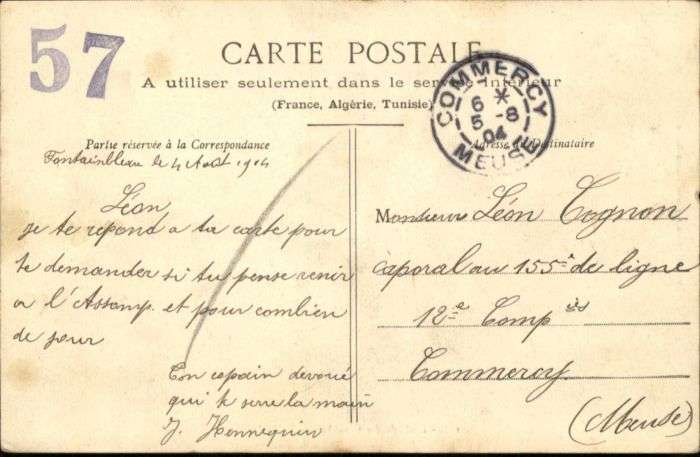 57
CARTE POSTALE
A utiliser seulement dans le service intérieur
(France, Algérie, Tunisie)
COMMERCY
6 *
5 -8
04
MEUSE
Partie réservée à la Correspondance
Adresse du Destinataire
Fontainbleau le 4 Août 1904
Léon
je te répond a ta carte pour
te demander si tu pense venir
a l'Assomp. et pour combien
de jour
Ton copain dévoué
qui te serre la main
J. Hennequin
Monsieur Léon Cognon
caporal au 155e de ligne
12e Comp
Commercy
(Meuse)